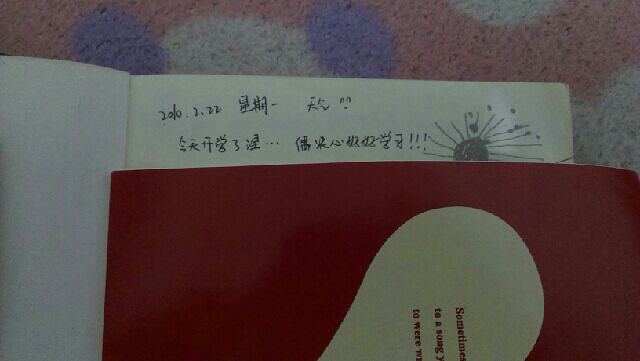 2010.2.22 星期一 天气
今天开学了涅… 偶决心好好学习!!!
Sometimes
to a song y
to were w